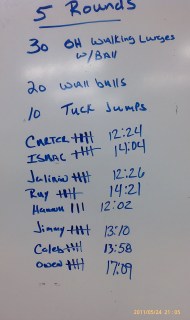 5 Rounds
30 OH Walking Lunges
w/Ball
20 Wall balls
10 Tuck Jumps
Carter 12:24
Isaac 14:04
12:26
Ray 14:21
Hannah III 12:02
Jimmy 13:10
Caleb 13:58
Owen 17:09